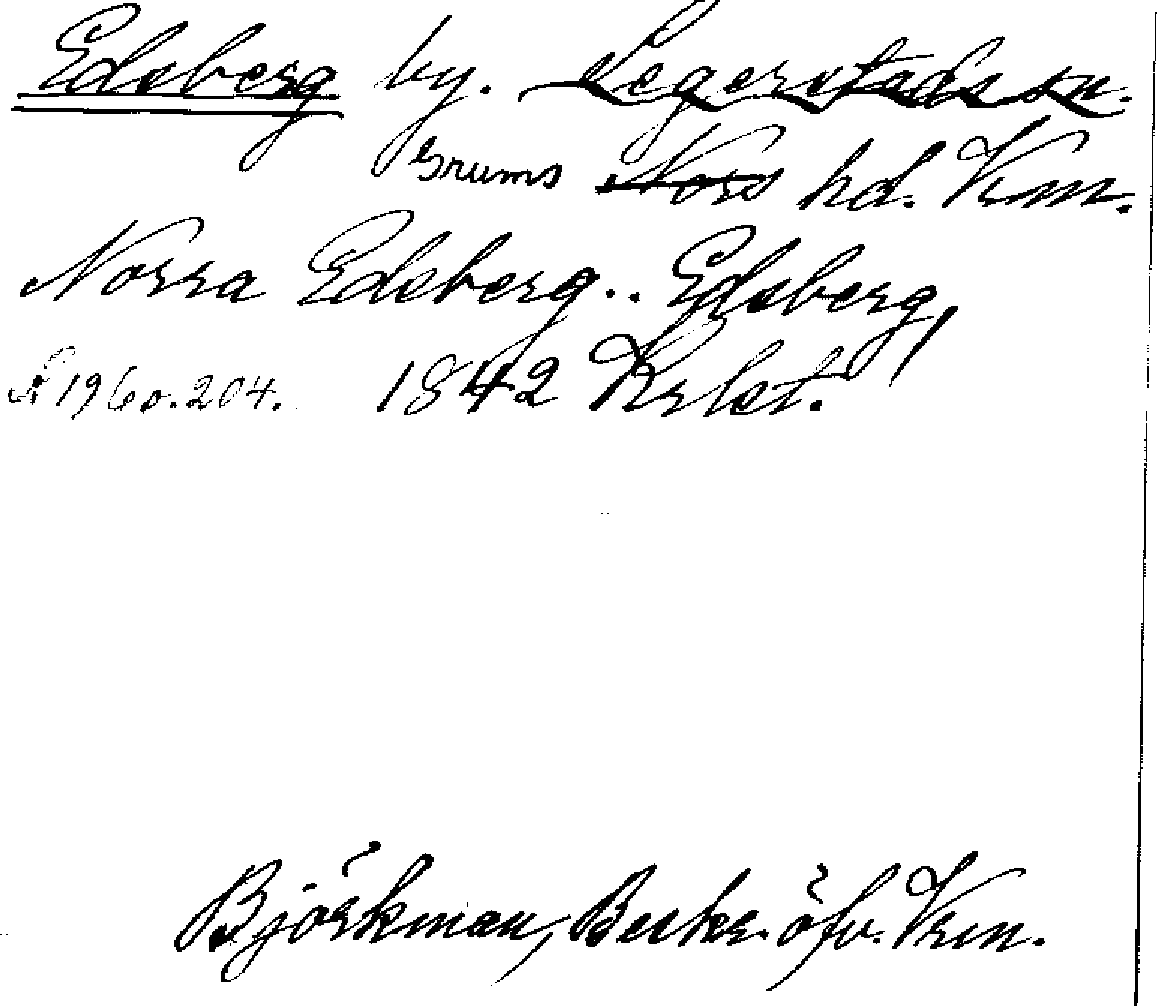 Edsberg by. Segerstads sn.
Grums Nors hd. Vrm.
Norra Edsberg.. Edsberg,
1960.204. 1842 Krlst.
Björkman, Beskr. öfv. Vrm.